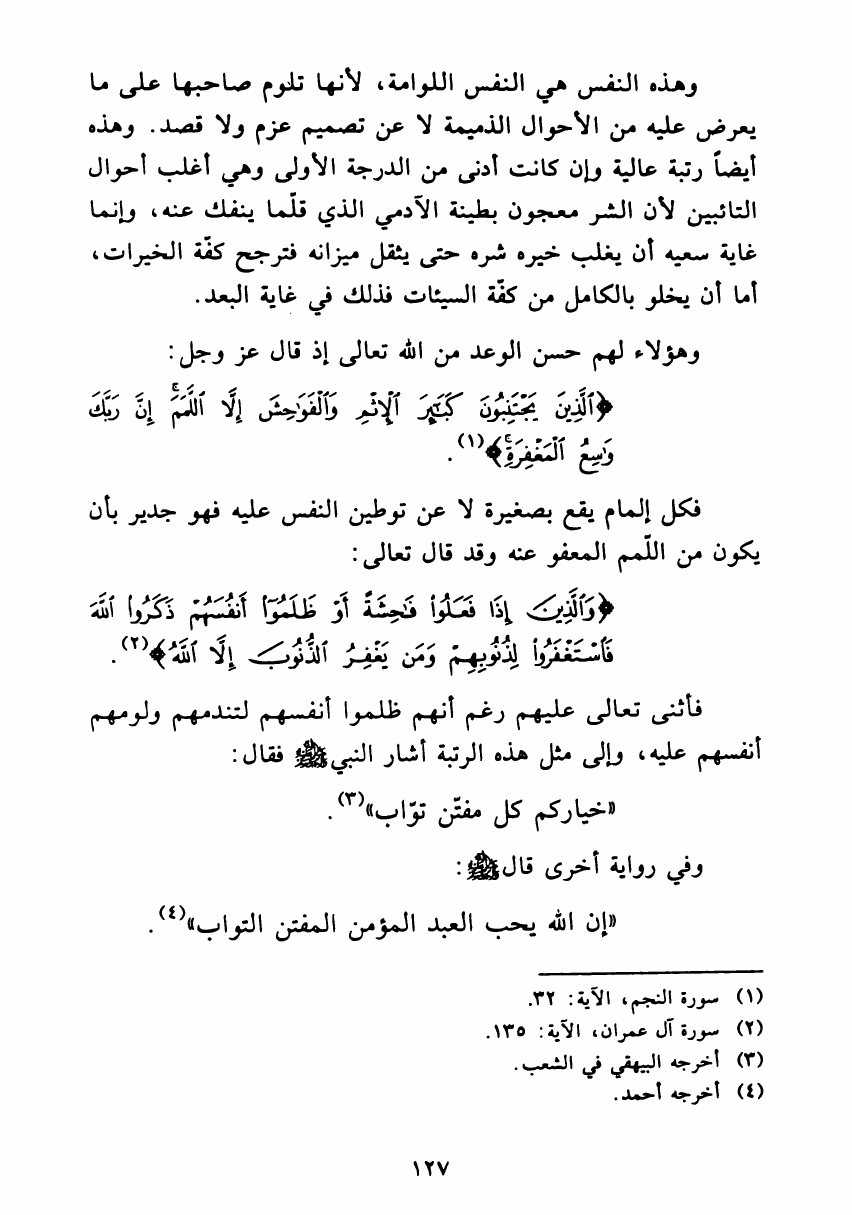 وهذه النفس هي النفس اللوامة، لأنها تلوم صاحبها على ما
يعرض عليه من الأحوال الذميمة لا عن تصميم عزم ولا قصد. وهذه
أيضاً رتبة عالية وإن كانت أدنى من الدرجة الأولى وهي أغلب أحوال
التائبين لأن الشر معجون بطينة الآدمي الذي قلّما ينفك عنه، وإنما
غاية سعيه أن يغلب خيره شره حتى يثقل ميزانه فترجح كفّة الخيرات،
أما أن يخلو بالكامل من كفّة السيئات فذلك في غاية البعد.
وهؤلاء لهم حسن الوعد من الله تعالى إذ قال عز وجل:
﴿ٱلَّذِينَ يَجْتَنِبُونَ كَبَٰٓئِرَ ٱلْإِثْمِ وَٱلْفَوَٰحِشَ إِلَّا ٱللَّمَمَ ۚ إِنَّ رَبَّكَ
وَٰسِعُ ٱلْمَغْفِرَةِ ۚ﴾(١).
فكل إلمام يقع بصغيرة لا عن توطين النفس عليه فهو جدير بأن
يكون من اللّمم المعفو عنه وقد قال تعالى:
﴿وَٱلَّذِينَ إِذَا فَعَلُوا۟ فَٰحِشَةً أَوْ ظَلَمُوٓا۟ أَنفُسَهُمْ ذَكَرُوا۟ ٱللَّهَ
فَٱسْتَغْفَرُوا۟ لِذُنُوبِهِمْ وَمَن يَغْفِرُ ٱلذُّنُوبَ إِلَّا ٱللَّهُ﴾(٢).
فأثنى تعالى عليهم رغم أنهم ظلموا أنفسهم لتندمهم ولومهم
أنفسهم عليه، وإلى مثل هذه الرتبة أشار النبي ﷺ فقال:
«خياركم كل مفتّن توّاب»(٣).
وفي رواية أخرى قال ﷺ:
«إن الله يحب العبد المؤمن المفتن التواب»(٤).
(١) سورة النجم، الآية: ٣٢.
(٢) سورة آل عمران، الآية: ١٣٥.
(٣) أخرجه البيهقي في الشعب.
(٤) أخرجه أحمد.
١٢٧